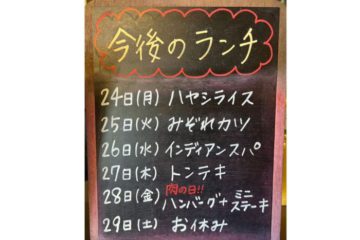 今後のランチ
24日(月) ハヤシライス
25日(火) みぞれカツ
26日(水) インディアンスパ
27日(木) トンテキ
28日(金) 肉の日!! ハンバーグ+ミニステーキ
29日(土) お休み